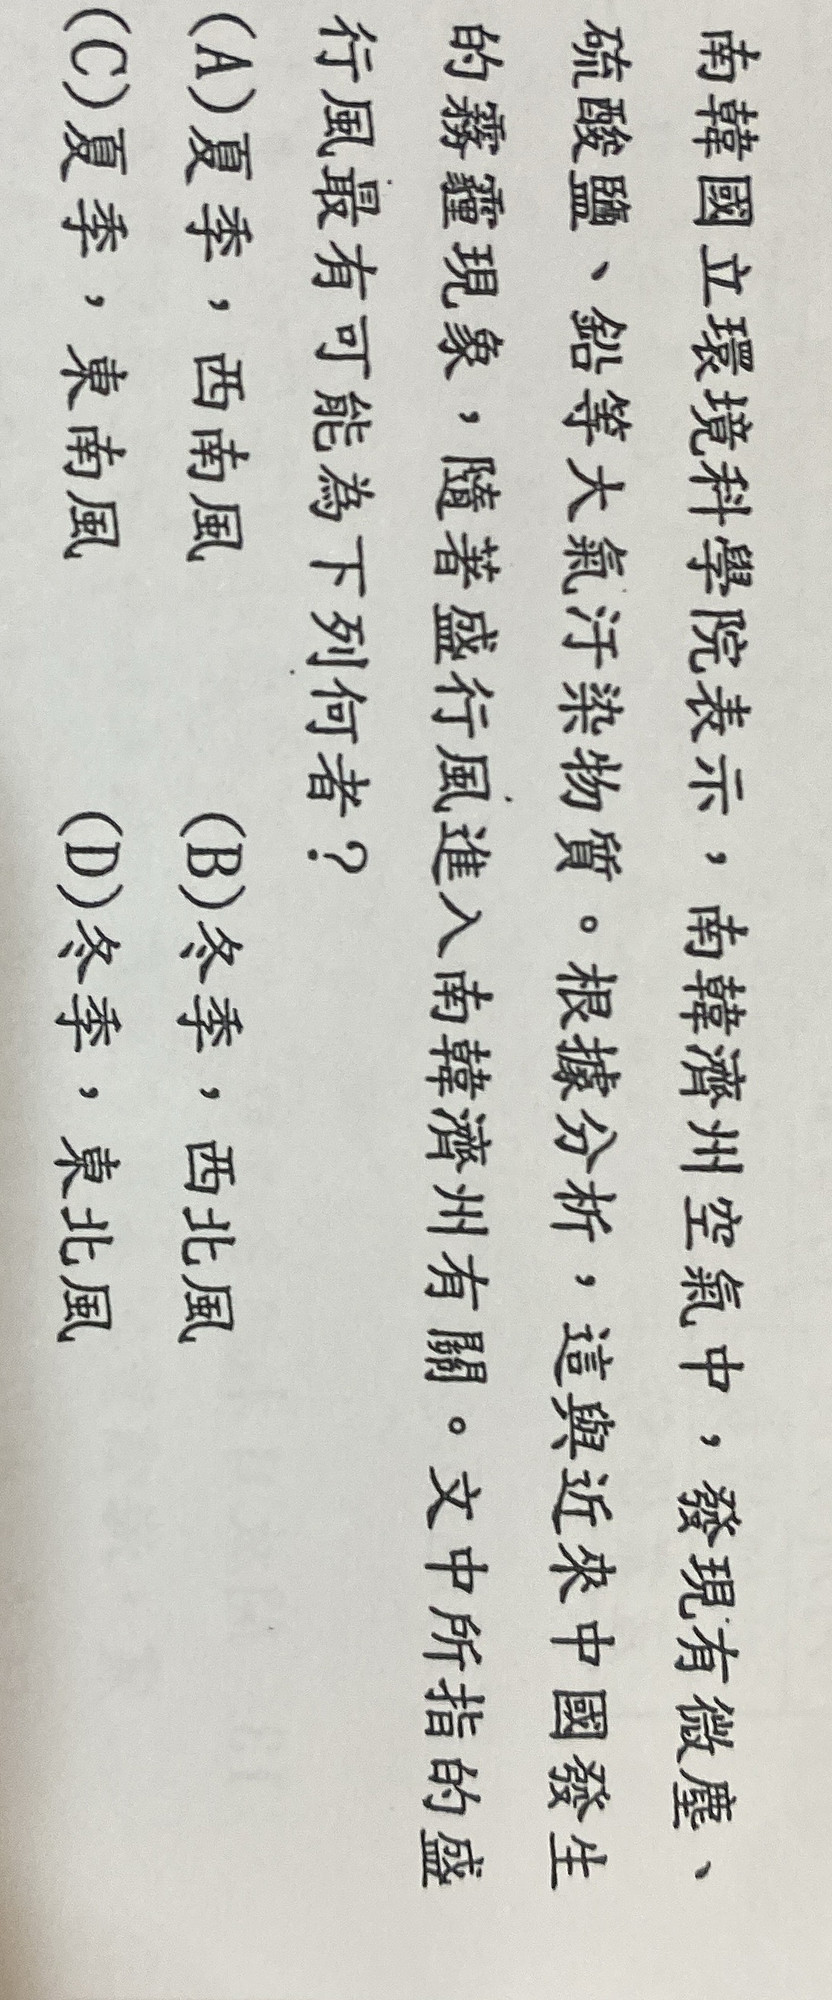 南韓國立環境科學院表示，南韓濟州空氣中，發現有微塵、
硫酸鹽、鉛等大氣汙染物質。根據分析，這與近來中國發生
的霧霾現象，隨著盛行風進入南韓濟州有關。文中所指的盛
行風最有可能為下列何者？
(A)夏季，西南風 (B)冬季，西北風
(C)夏季，東南風 (D)冬季，東北風